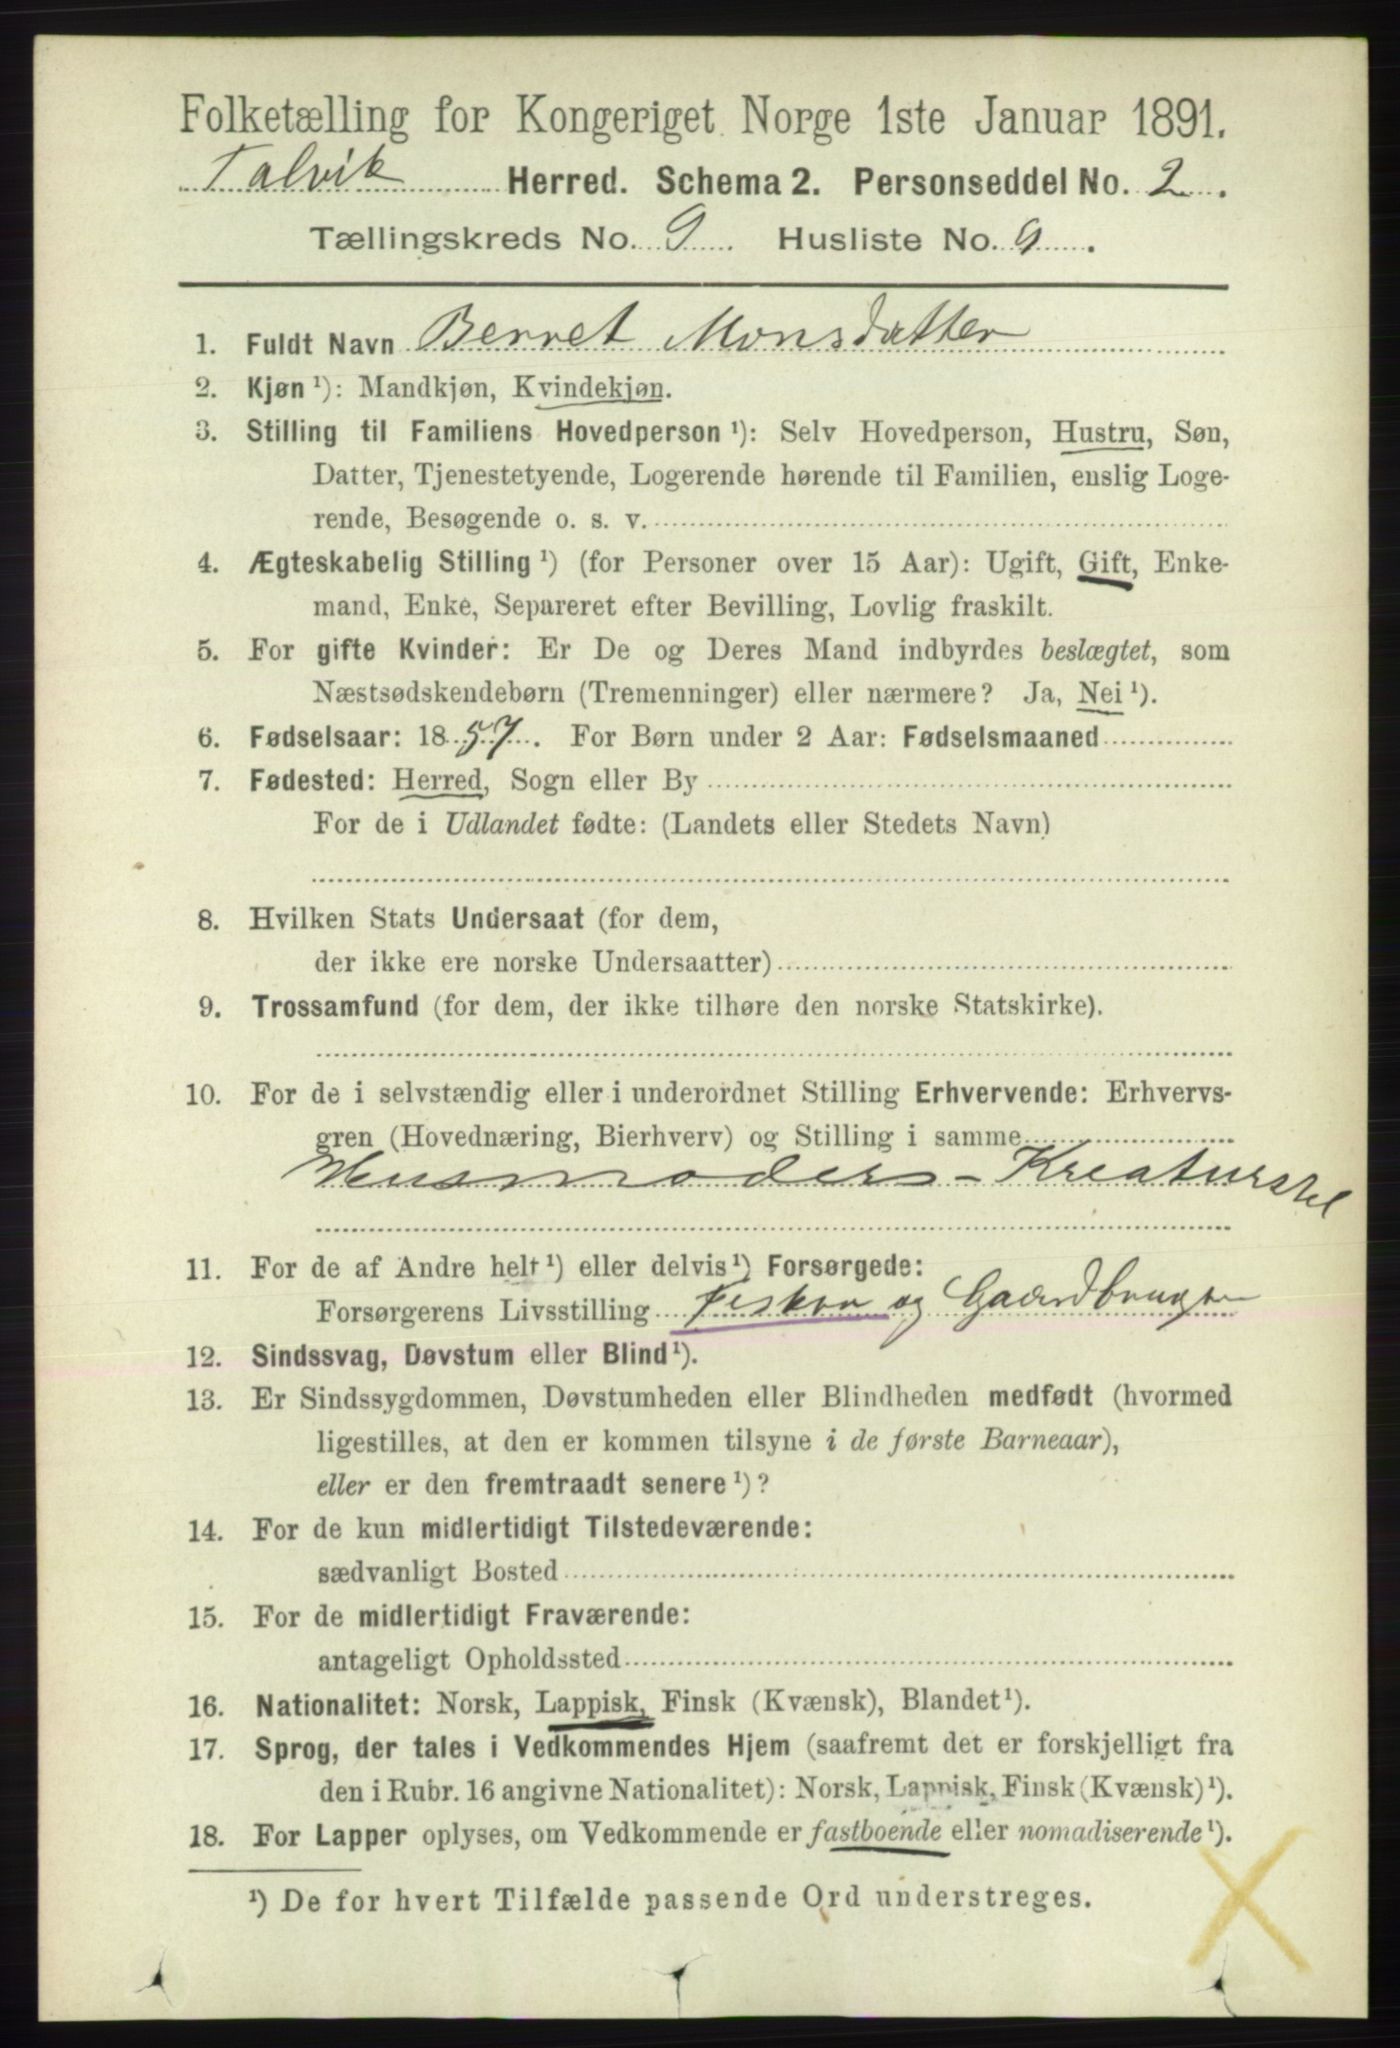 Folketælling for Kongeriget Norge 1ste Januar 1891.
Talvik Herred. Schema 2. Personseddel No. 2.
Tællingskreds No. 9 Husliste No. 9.
1. Fuldt Navn Berret Monsdatter
2. Kjøn ¹): Mandkjøn, Kvindekjøn.
3. Stilling til Familiens Hovedperson ¹): Selv Hovedperson, Hustru, Søn,
Datter, Tjenestetyende, Logerende hørende til Familien, enslig Loge-
rende, Besøgende o. s. v.
4. Ægteskabelig Stilling ¹) (for Personer over 15 Aar): Ugift, Gift, Enke-
mand, Enke, Separeret efter Bevilling, Lovlig fraskilt.
5. For gifte Kvinder: Er De og Deres Mand indbyrdes beslægtet, som
Næstsødskendebørn (Tremenninger) eller nærmere? Ja, Nei ¹).
6. Fødselsaar: 1857. For Børn under 2 Aar: Fødselsmaaned
7. Fødested: Herred, Sogn eller By
For de i Udlandet fødte: (Landets eller Stedets Navn)
8. Hvilken Stats Undersaat (for dem,
der ikke ere norske Undersaatter)
9. Trossamfund (for dem, der ikke tilhøre den norske Statskirke).
10. For de i selvstændig eller i underordnet Stilling Erhvervende: Erhvervs-
gren (Hovednæring, Bierhverv) og Stilling i samme
Husmoders - Kreaturstel
11. For de af Andre helt ¹) eller delvis ¹) Forsørgede:
Forsørgerens Livsstilling Fisker og Gaardbruger
12. Sindssvag, Døvstum eller Blind ¹).
13. Er Sindssygdommen, Døvstumheden eller Blindheden medfødt (hvormed
ligestilles, at den er kommen tilsyne i de første Barneaar),
eller er den fremtraadt senere ¹)?
14. For de kun midlertidigt Tilstedeværende:
sædvanligt Bosted
15. For de midlertidigt Fraværende:
antageligt Opholdssted
16. Nationalitet: Norsk, Lappisk, Finsk (Kvænsk), Blandet ¹).
17. Sprog, der tales i Vedkommendes Hjem (saafremt det er forskjelligt fra
den i Rubr. 16 angivne Nationalitet): Norsk, Lappisk, Finsk (Kvænsk) ¹).
18. For Lapper oplyses, om Vedkommende er fastboende eller nomadiserende ¹).
¹) De for hvert Tilfælde passende Ord understreges.